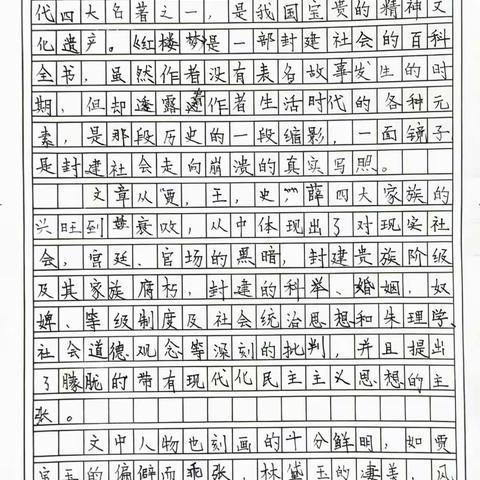 代四大名著之一，是我国宝贵的精神文
化遗产。《红楼梦》是一部封建社会的百科
全书，虽然作者没有表名故事发生的时
期，但却透露着作者生活时代的各种元
素，是那段历史的一段缩影，一面镜子
是封建社会走向崩溃的真实写照。
文章从"贾，王，史，薛四大家族的
兴旺到衰败，从中体现出了对现实社
会，宫廷、官场的黑暗，封建贵族阶级
及其家族腐朽，封建的科举、婚姻，奴
婢、等级制度及社会统治思想和朱理学、
社会道德观念等深刻的批判，并且提出
了朦胧的带有现代化民主主义思想的主
张。
文中人物也刻画的十分鲜明，如贾
宝玉的偏僻而乖张，林黛玉的凄美，风